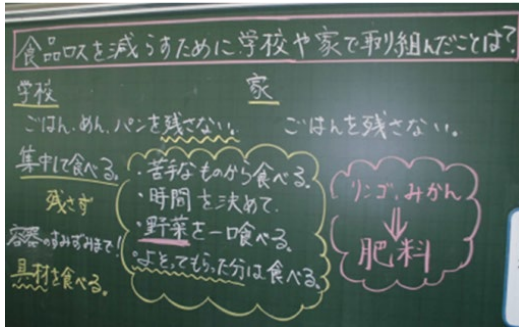 食品ロスを減らすために学校や家で取り組んだことは？
学校
ごはん、めん、パンを残さない。
集中して食べる。
残さず
容器のすみずみまで！
具材を食べる。
・苦手なものから食べる。
・時間を決めて。
・野菜を一口食べる。
・よそってもらった分は食べる。
家
ごはんを残さない。
リンゴ、みかん
⇓
肥料